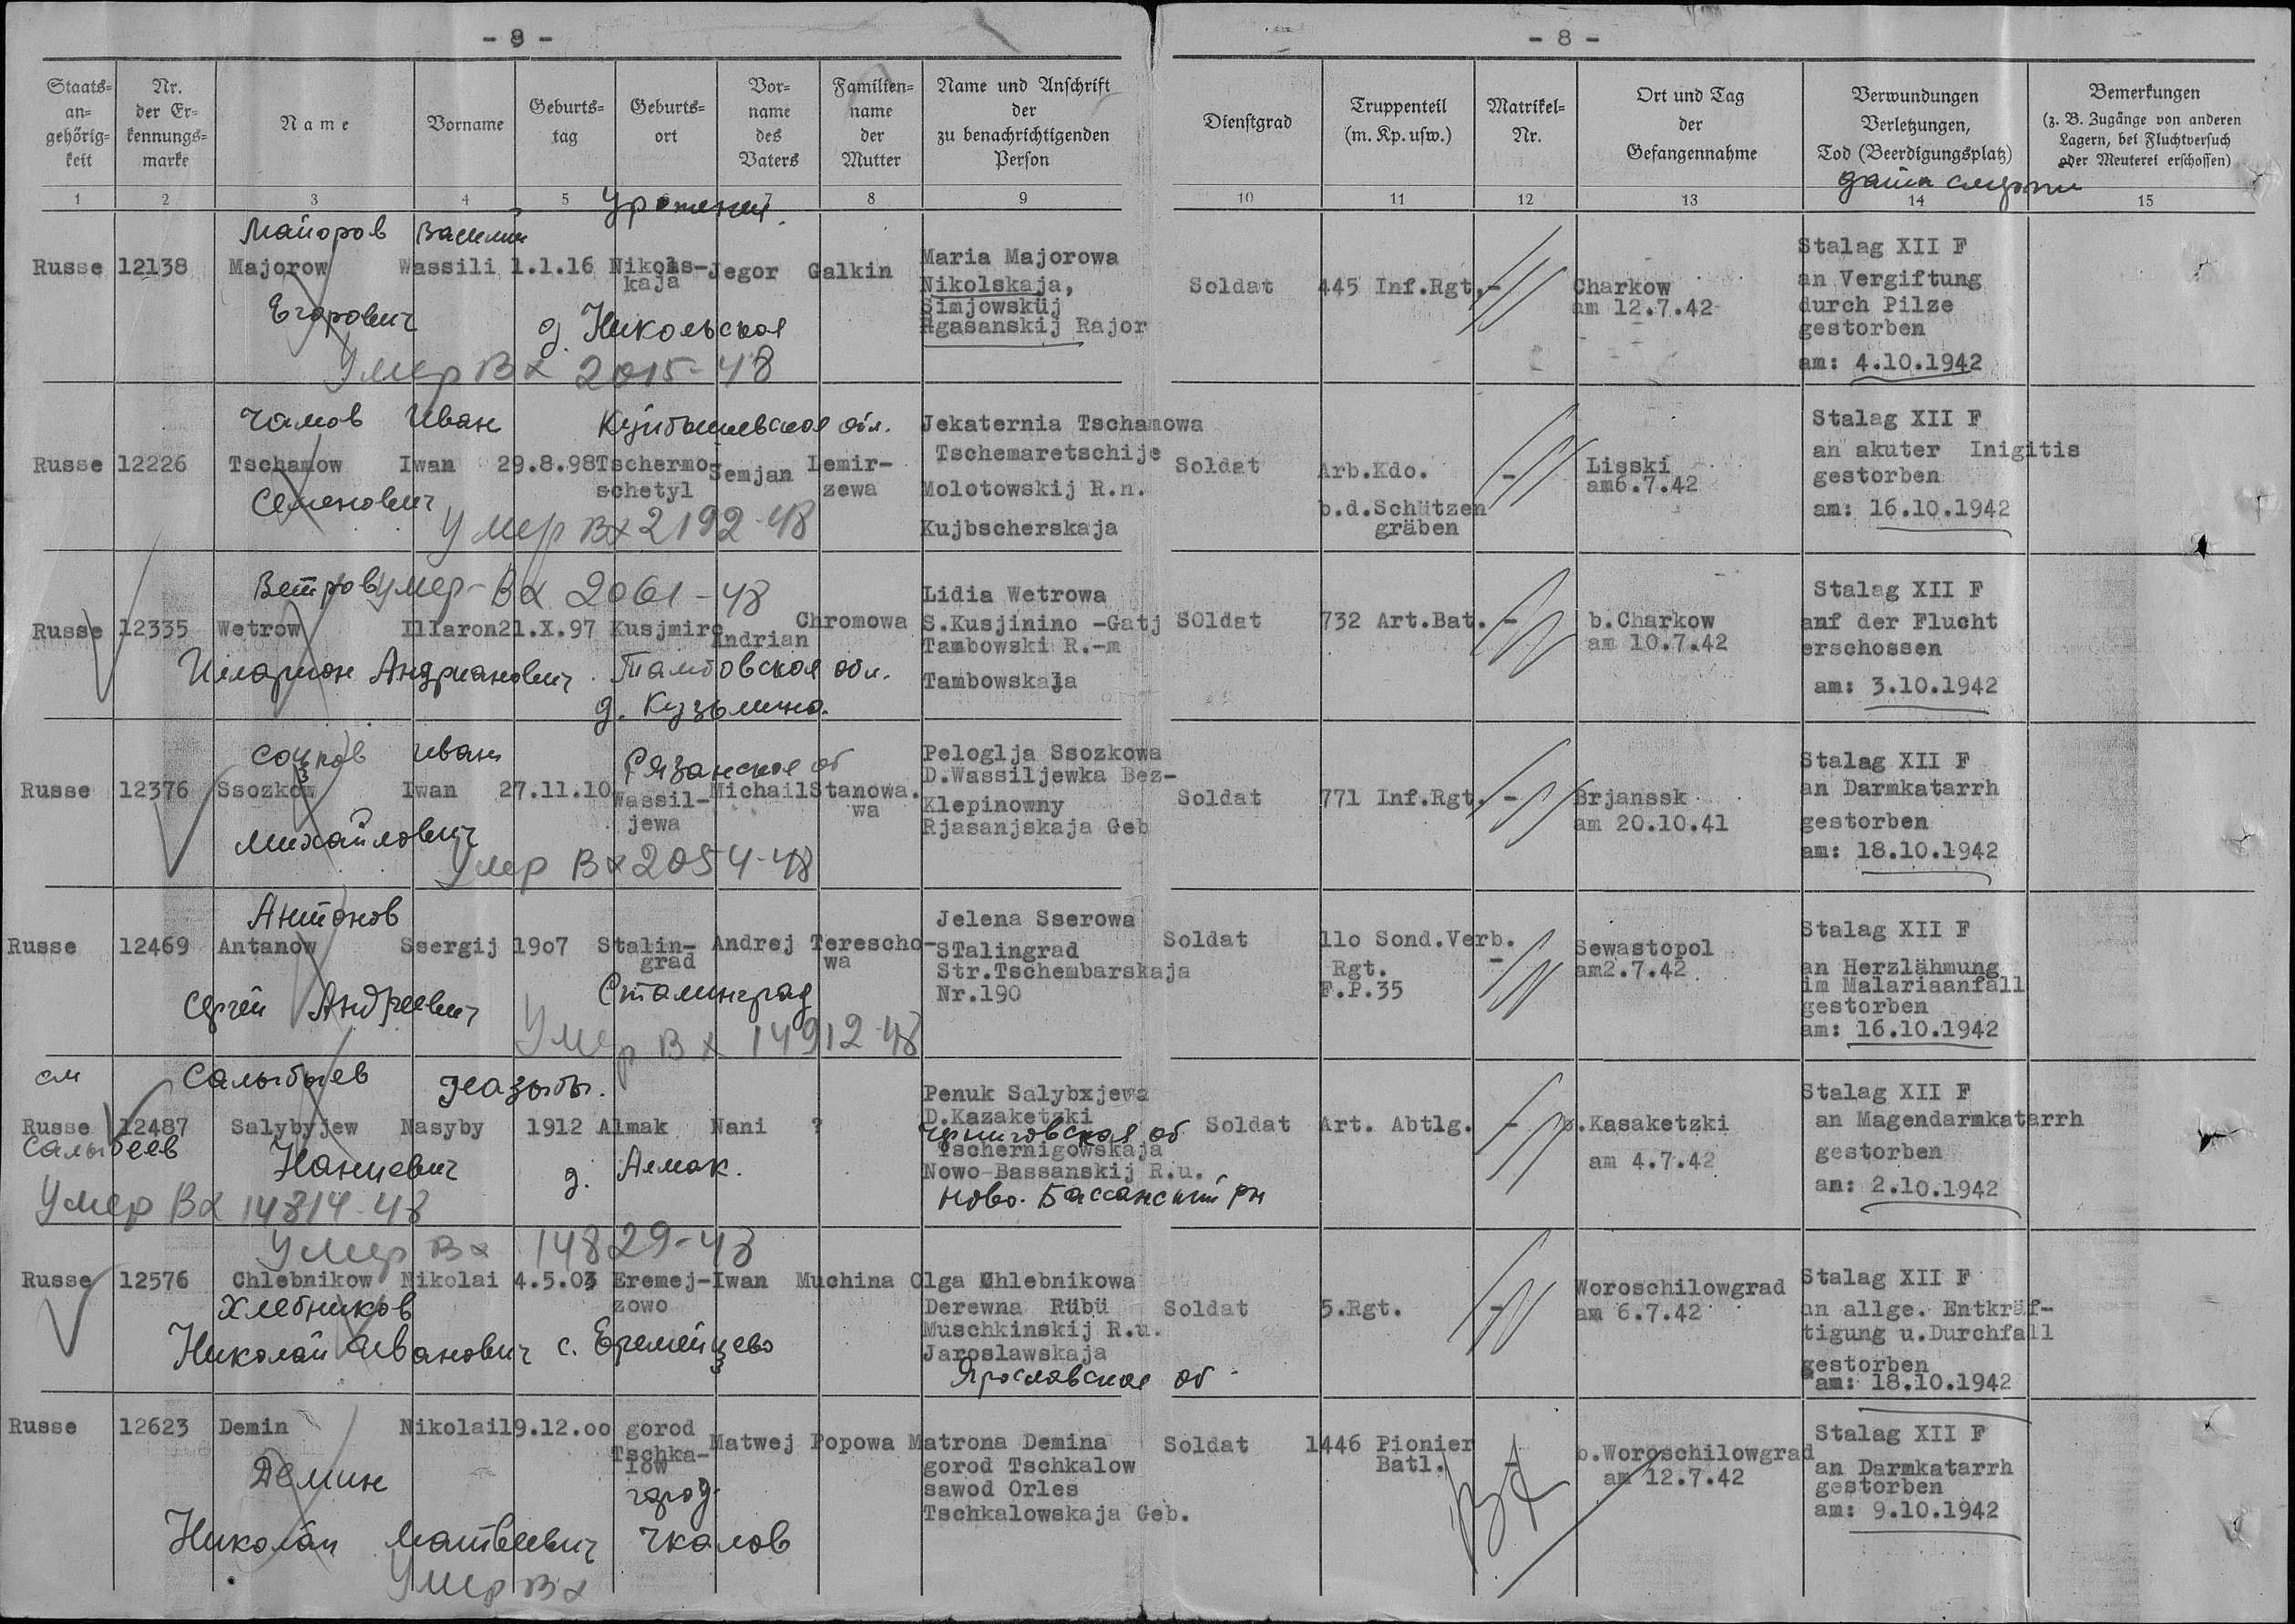 - 9 -
- 8 -
Staats-
an-
gehörig-
keit
Nr.
der Er-
kennungs-
marke
Name
Vorname
Geburts-
tag
Geburts-
ort
Vor-
name
des
Vaters
Familien-
name
der
Mutter
Name und Anschrift
der
zu benachrichtigenden
Person
Dienstgrad
Truppenteil
(m. Kp. usw.)
Matrikel-
Nr.
Ort und Tag
der
Gefangennahme
Verwundungen
Verletzungen,
Tod (Beerdigungsplatz)
дата смерти
Bemerkungen
(z. B. Zugänge von anderen
Lagern, bei Fluchtversuch
oder Meuterei erschossen)
1 2 3 4 5 6 7 8 9 10 11 12 13 14 15
Майоров Василий
Russe 12138 Majorow Wassili 1.1.16 Nikols-
kaja
Jegor Galkin
Егорович
д. Никольская
Умер Вх 2015-48
Maria Majorowa
Nikolskaja,
Simjowsküj
Rgasanskij Rajor
Soldat 445 Inf.Rgt. -
Charkow
am 12.7.42
Stalag XII F
an Vergiftung
durch Pilze
gestorben
am: 4.10.1942
Чамов Иван Куйбышевская обл.
Russe 12226 Tschamow Iwan 29.8.98 Tschermo-
schetyl
Semjan Lemir-
zewa
Семенович
Умер Вх 2192-48
Jekaternia Tschamowa
Tschemaretschije
Molotowskij R.n.
Kujbscherskaja
Soldat Arb.Kdo.
b.d.Schützen
gräben
-
Lisski
am6.7.42
Stalag XII F
an akuter Inigitis
gestorben
am: 16.10.1942
Ветров умер- Вх 2061-48
Russe 12335 Wetrow Illaron 21.X.97 Kusjmiro
Andrian Chromowa
Иларион Андрианович Тамбовская обл.
д. Кузьмино.
Lidia Wetrowa
S.Kusjinino -Gatj
Tambowski R.-m
Tambowskaja
SOldat 732 Art.Bat. -
b.Charkow
am 10.7.42
Stalag XII F
anf der Flucht
erschossen
am: 3.10.1942
Соцков Иван Рязанская об
Russe 12376 Ssozkow Iwan 27.11.10 Wassil-
jewa
Michail Stanowa.
wa
Михайлович
Умер Вх 2054-48
Peloglja Ssozkowa
D.Wassiljewka Bez-
Klepinowny
Rjasanjskaja Geb
Soldat 771 Inf.Rgt. -
Brjanssk
am 20.10.41
Stalag XII F
an Darmkatarrh
gestorben
am: 18.10.1942
Антонов
Russe 12469 Antanow Ssergij 19o7 Stalin-
grad
Andrej Terescho-
wa
Сергей Андреевич Сталинград
Умер Вх 14912-48
Jelena Sserowa
STalingrad
Str.Tschembarskaja
Nr.190
Soldat 11o Sond.Verb.
Rgt.
F.P.35
-
Sewastopol
am2.7.42
Stalag XII F
an Herzlähmung
im Malariaanfall
gestorben
am: 16.10.1942
см Салыбыев Назыбы.
Russe 12487 Salybyjew Nasyby 1912 Almak Nani ?
Салыбеев
Наниевич д. Алмак.
Умер Вх 14814-48
Penuk Salybxjewa
D.Kazaketzki
Черниговская об
Tschernigowskaja
Nowo-Bassanskij R.u.
Ново. Бассанский рн
Soldat Art. Abtlg. -
b.Kasaketzki
am 4.7.42
Stalag XII F
an Magendarmkatarrh
gestorben
am: 2.10.1942
Умер Вх 14829-48
Russe 12576 Chlebnikow Nikolai 4.5.03 Eremej-
zowo
Iwan Muchina
Хлебников
Николай Иванович с. Еремейцево
Olga Chlebnikowa
Derewna Rübü
Muschkinskij R.u.
Jaroslawskaja
Ярославская об
Soldat 5.Rgt. -
Woroschilowgrad
am 6.7.42
Stalag XII F
an allge. Entkräf-
tigung u.Durchfall
gestorben
am: 18.10.1942
Russe 12623 Demin Nikolai 19.12.oo gorod
Tschka-
low
Matwej Popowa
Демин город.
Николай Матвеевич Чкалов
Умер Вх
Matrona Demina
gorod Tschkalow
sawod Orles
Tschkalowskaja Geb.
Soldat 1446 Pionier
Batl.
-
Вх
b.Woroschilowgrad
am 12.7.42
Stalag XII F
an Darmkatarrh
gestorben
am: 9.10.1942